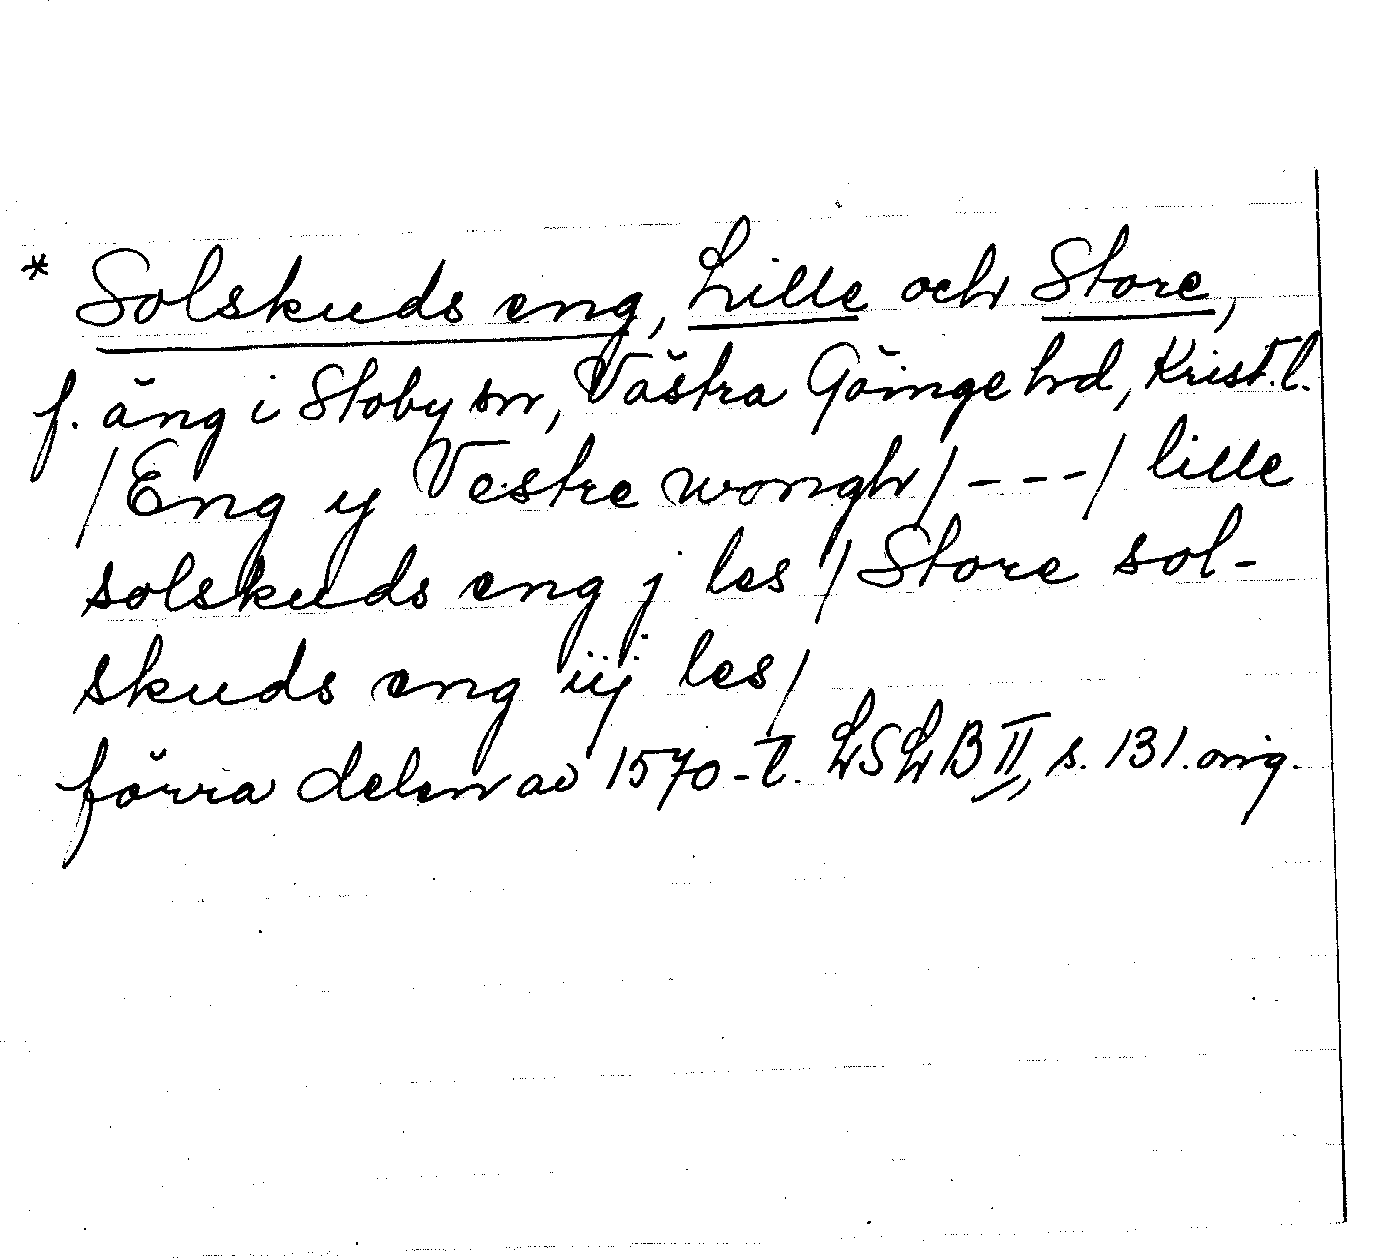 * Solskuds eng, Lille och Store,
f. äng i Stoby sn, Västra Göinge hd, Krist. l.
/Eng y Vestre wongh/ - - - / lille
solskuds eng j les / Store sol-
skuds eng iij les /
förra delen av 1570-t. LSLB II, s. 131. orig.